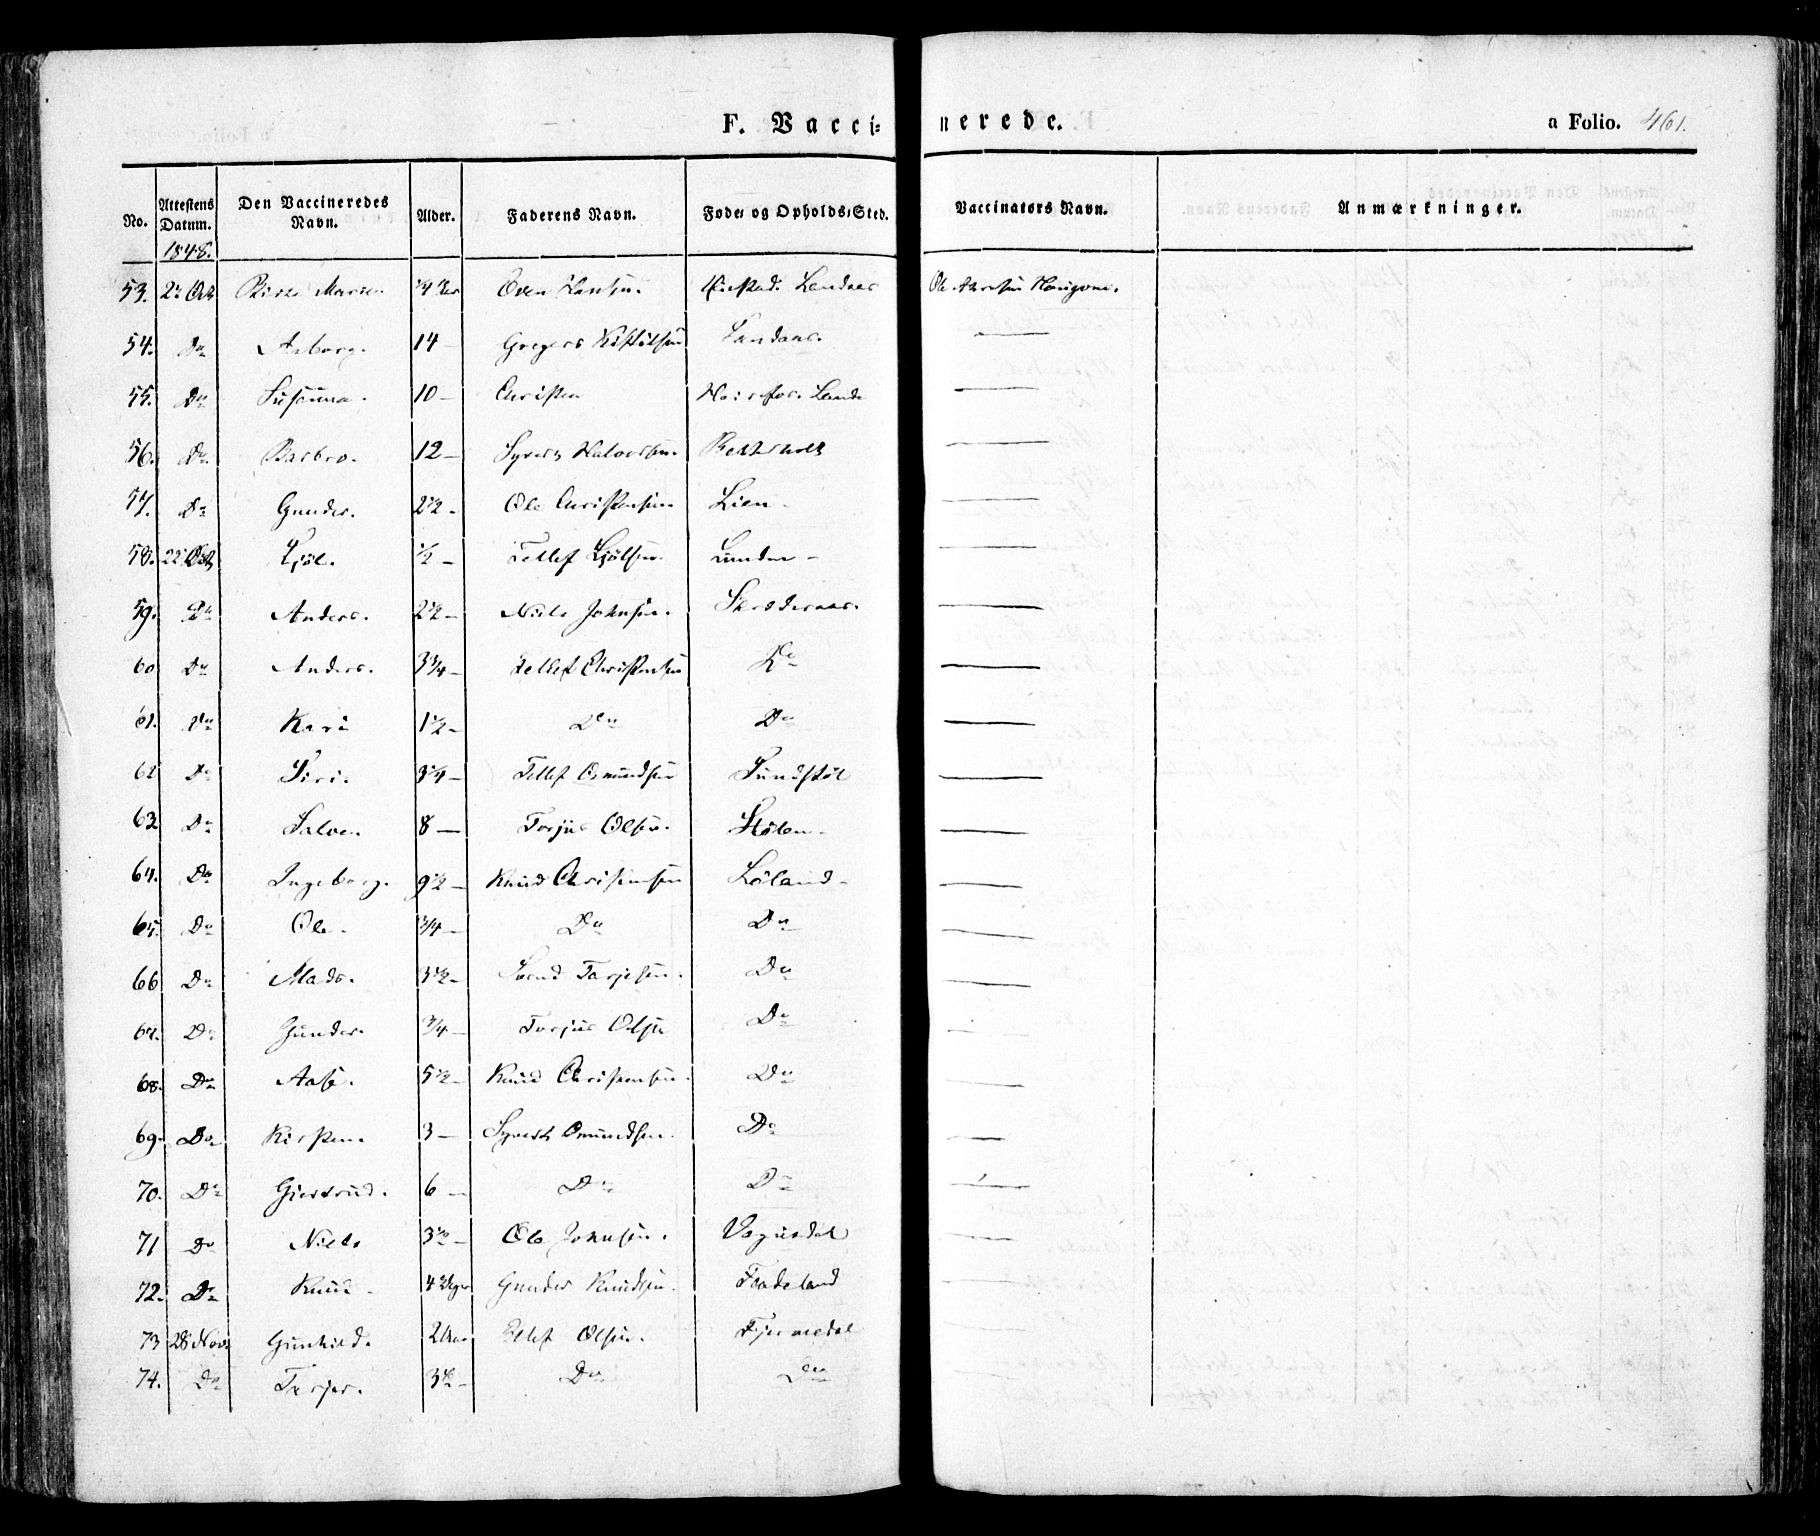 F. Vaccinerede.
a Folio. 461.
No. Attestens Datum. Den Vaccineredes Navn. Alder. Faderens Navn. Føde- og Opholds-Sted. Vaccinators Navn. Anmærkninger.
1848.
53. Oct Marie Oven Hansen.
54. Do Aaborg. 14 — Gregers Kittilsen Landaas. —
55. Do Susanna. 10 — Christen —
56. Do Barbro. 12 — Syvert Halvorsen. —
57. Do Gunder. 2 1/2 - Ole Christensen Lien. —
58. 22 Oct Kjøl. 1/2 — Tellef Kjølsen. Lunden —
59. Do Anders. 2 1/2 — Niels Johnsen. Skroderaas. —
60 Do Anders. 3 3/4 — Tellef Christensen Do —
61. Do Kari 1 1/2 — Do Do —
62 Do Siri. 3 1/4 — Tellef Osmundsen Lundstøl —
63 Do Salve. 8 — Torjus Olsen. Stølen. —
64. Do Ingeborg. 9 1/2 — Knud Christensen Løland. —
65. Do Ole. 3/4 — Do Do —
66 Do Mads. 3 1/2 - Svend Tarjesen. Do —
67. Do Gunder. 3/4 — Torjus Olsen Do —
68. Do Aase. 5 1/2 - Knud Christensen. Do —
69. Do Kirsten. 3 — Syvert Omundsen. Do —
70. Do Giertrud. 6 — Do Do —
71 Do Niels 3 1/2 — Ole Johnsen. Vegusdal —
72. Do Knud. 4 Uger Gunder Knudsen. Faadeland —
73 28 Nov. Gunhild. 2 Aar Tellef Olsen. Fjermedal —
74. Do Terjer. 3 1/2 - Do Do —